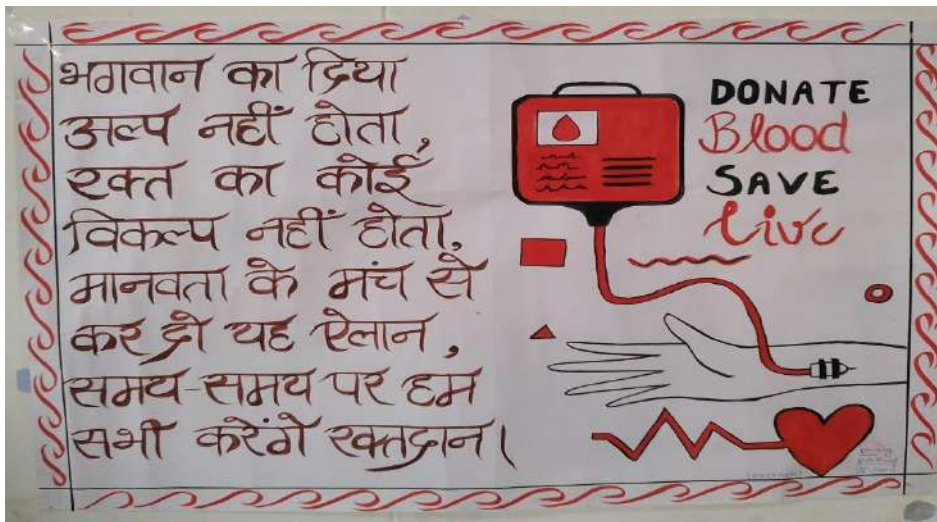 भगवान का दिया
अल्प नहीं होता,
रक्त का कोई
विकल्प नहीं होता,
मानवता के मंच से
कर दो यह ऐलान,
समय-समय पर हम
सभी करेंगे रक्तदान।
DONATE
Blood
SAVE
live